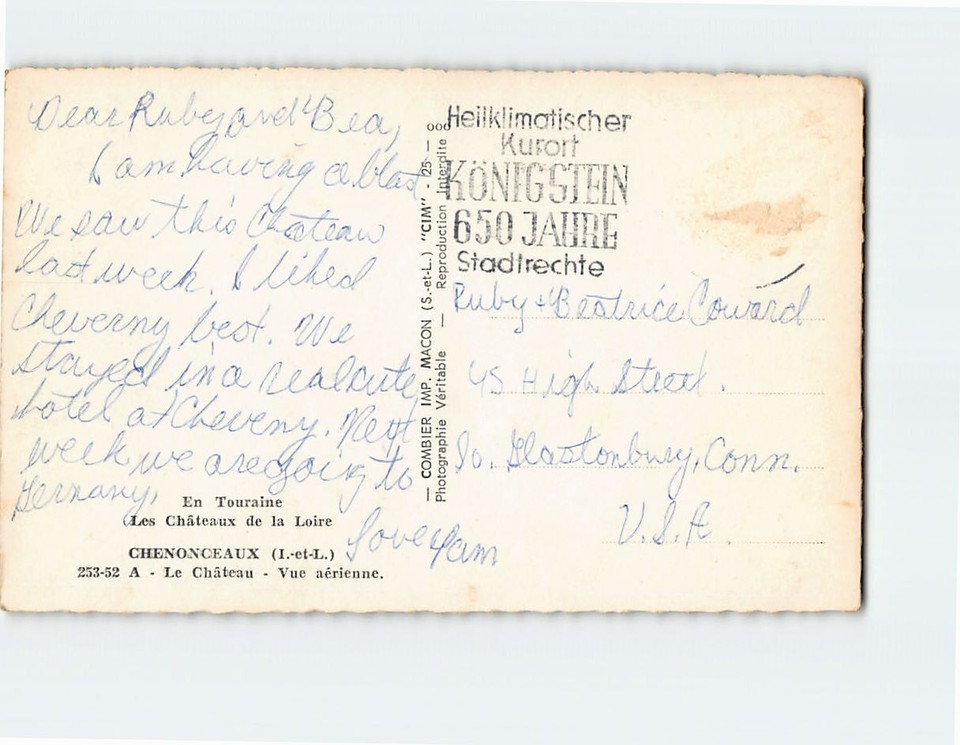 Dear Ruby and Bea,
I am having a blast
We saw this Chateau
last week. I liked
Cheverny best. We
stayed in a real cute
hotel at Cheverny. Next
week we are going to
Germany,
Love Pam
En Touraine
Les Châteaux de la Loire
CHENONCEAUX (I.-et-L.)
253-52 A - Le Château - Vue aérienne.
— COMBIER IMP. MACON (S.-et-L.) "CIM" - 25 —
Photographie Véritable — Reproduction Interdite
Heilklimatischer
Kurort
KÖNIGSTEIN
650 JAHRE
Stadtrechte
Ruby + Beatrice Coward
45 High Street.
So. Glastonbury, Conn.
U.S.A.